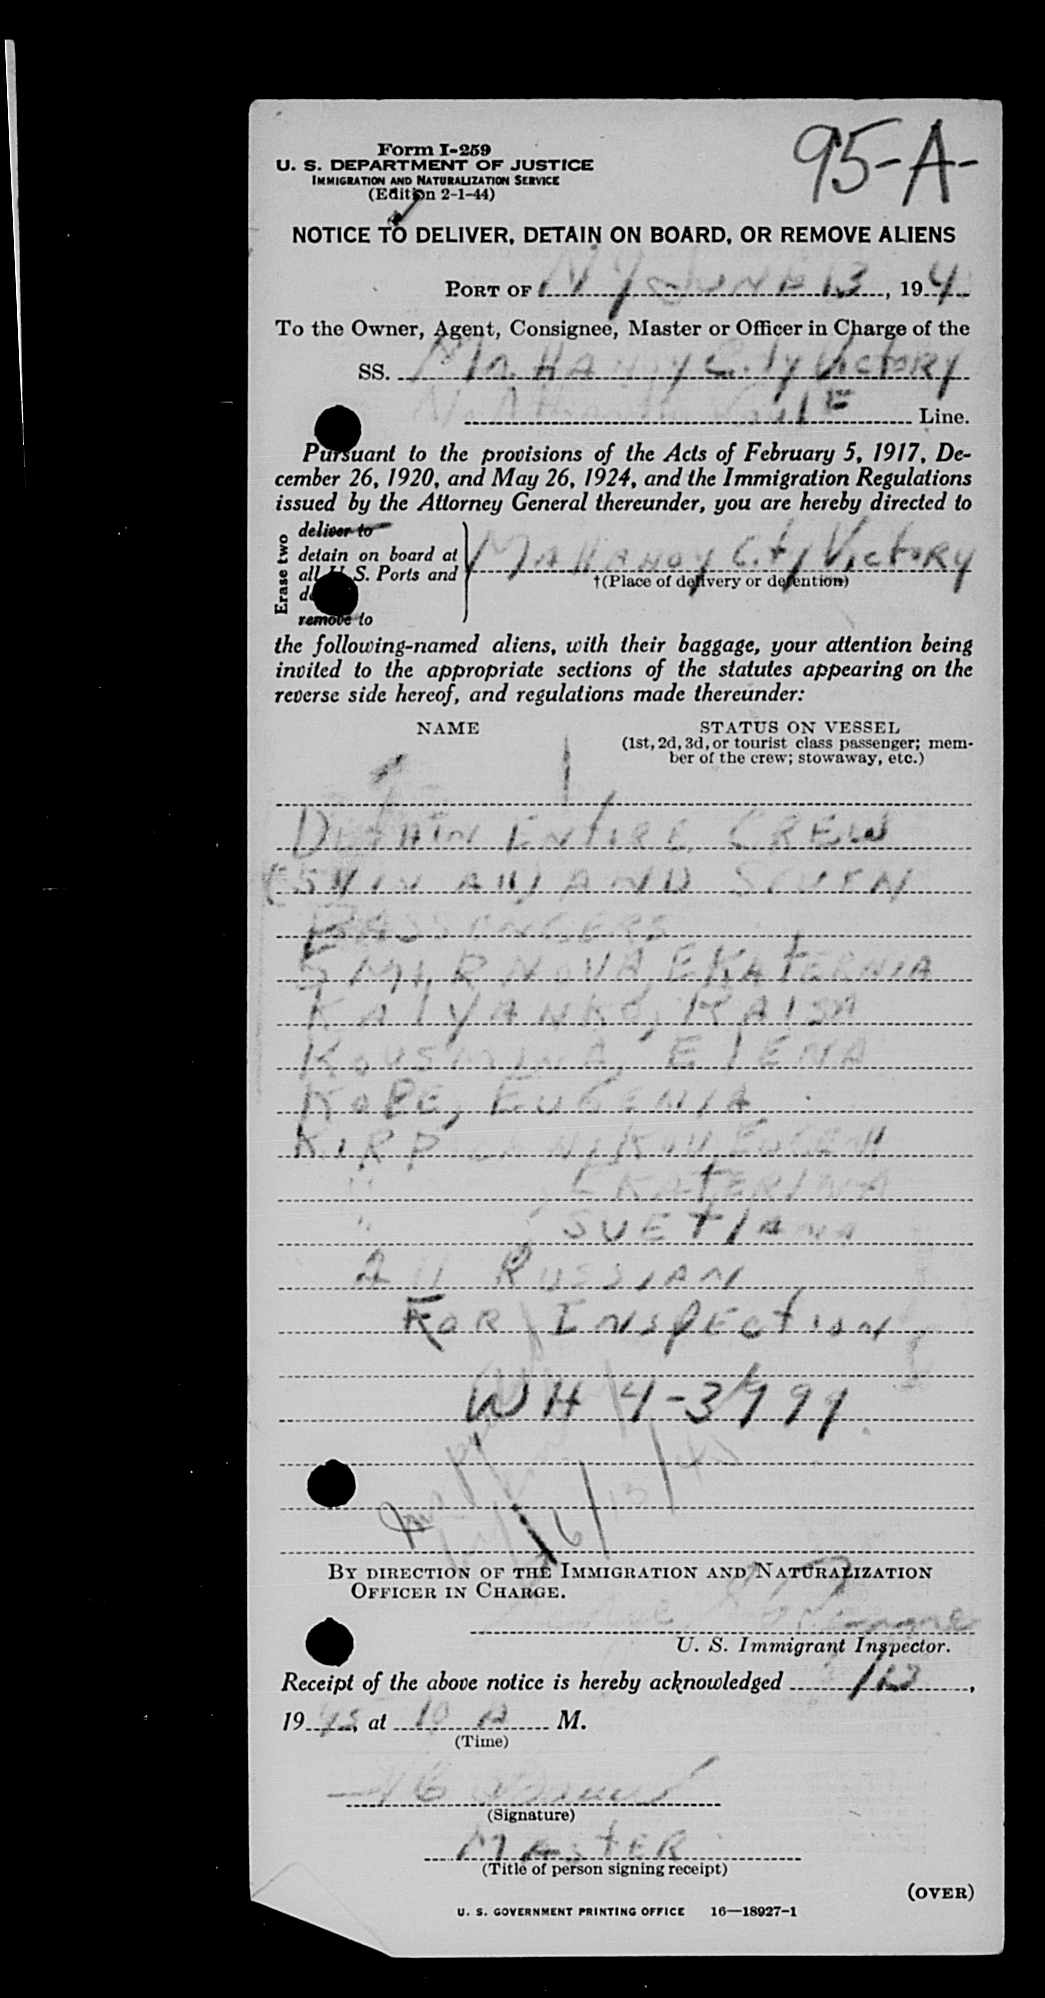 95-A-
Form I-259
U. S. DEPARTMENT OF JUSTICE
IMMIGRATION AND NATURALIZATION SERVICE
(Edition 2-1-44)
NOTICE TO DELIVER, DETAIN ON BOARD, OR REMOVE ALIENS
PORT OF N Y JUNE 13, 194
To the Owner, Agent, Consignee, Master or Officer in Charge of the
SS. MAHANOY CITY VICTORY
Line.
Pursuant to the provisions of the Acts of February 5, 1917, De-
cember 26, 1920, and May 26, 1924, and the Immigration Regulations
issued by the Attorney General thereunder, you are hereby directed to
Erase two
deliver to
detain on board at
all U. S. Ports and
MAHANOY CITY VICTORY
†(Place of delivery or detention)
remove to
the following-named aliens, with their baggage, your attention being
invited to the appropriate sections of the statutes appearing on the
reverse side hereof, and regulations made thereunder:
NAME STATUS ON VESSEL
(1st, 2d, 3d, or tourist class passenger; mem-
ber of the crew; stowaway, etc.)
DETAIN ENTIRE CREW
AND SEVEN
PASSENGERS
SMIRNOVA, EKATERNIA
KALYANKO, RAISA
KOUSMINA, ELENA
KOPE, EUGENIA
KIRP
" EKATERINA
" SUETLANA
All RUSSIAN
FOR INSPECTION
WH 4-3999
6/13/45
BY DIRECTION OF THE IMMIGRATION AND NATURALIZATION
OFFICER IN CHARGE.
U. S. Immigrant Inspector.
Receipt of the above notice is hereby acknowledged /13,
1945, at 10 A M.
(Time)
(Signature)
MASTER
(Title of person signing receipt)
(OVER)
U. S. GOVERNMENT PRINTING OFFICE 16—18927-1